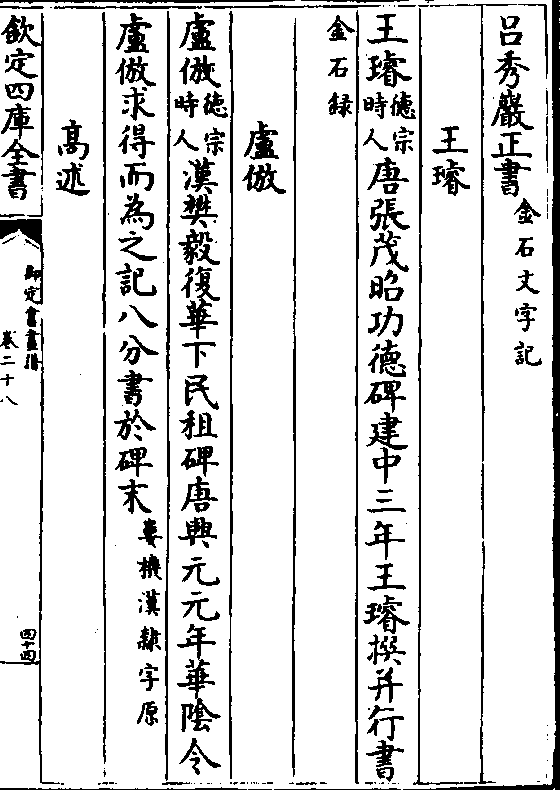 呂秀巖正書金石文字記
王璿
王璿德宗時人唐張茂昭功德碑建中三年王璿撰并行書
金石録
盧倣
盧倣德宗時人漢樊毅復華下民租碑唐興元元年華陰令
盧倣求得而為之記八分書於碑末婁機漢隸字原
高述
欽定四庫全書
御定書畫譜
卷二十八
四十四